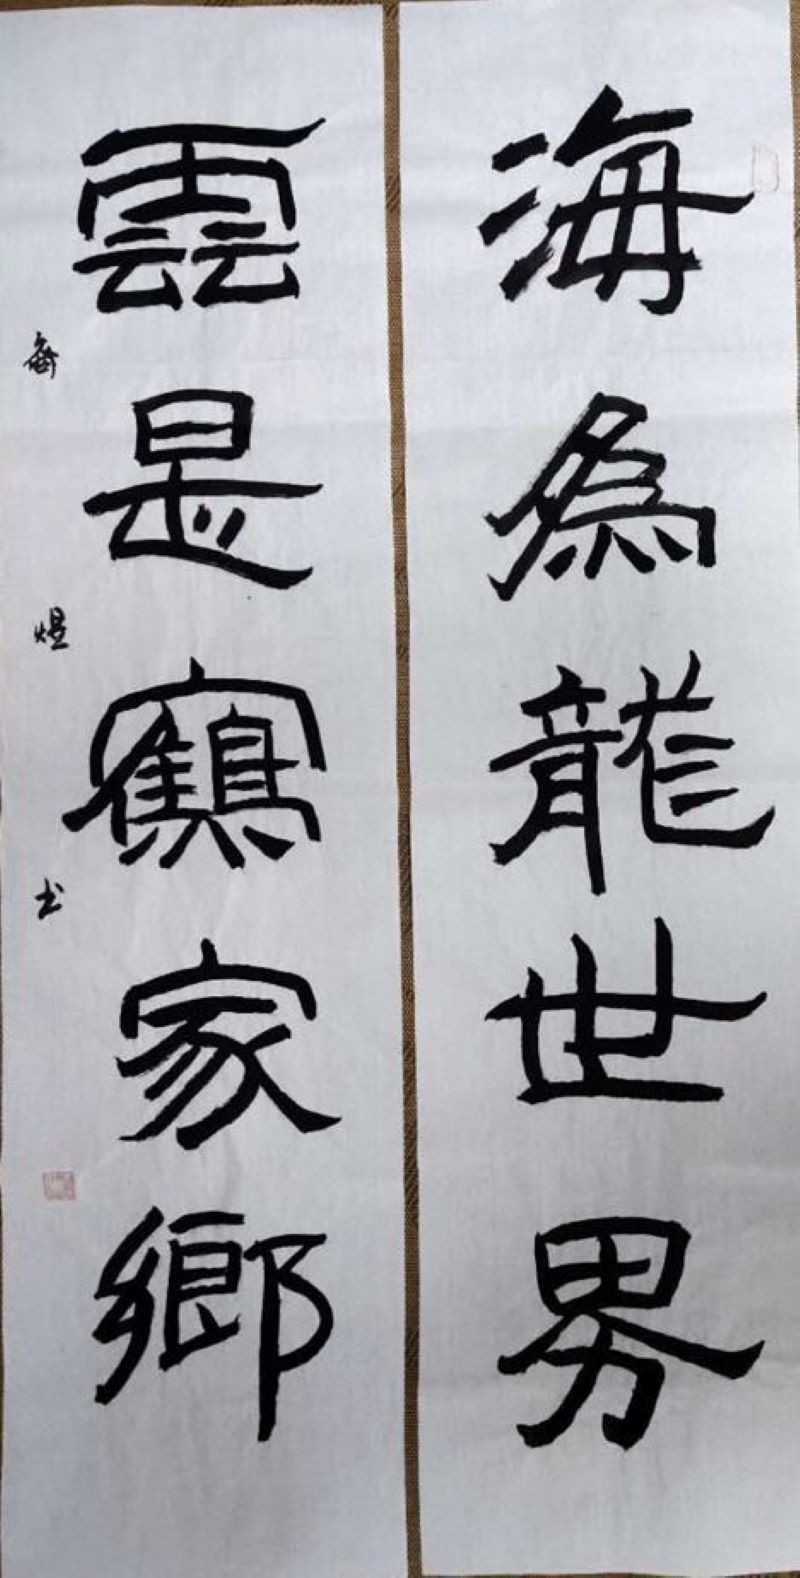 海為龍世界
雲是鶴家鄉
书